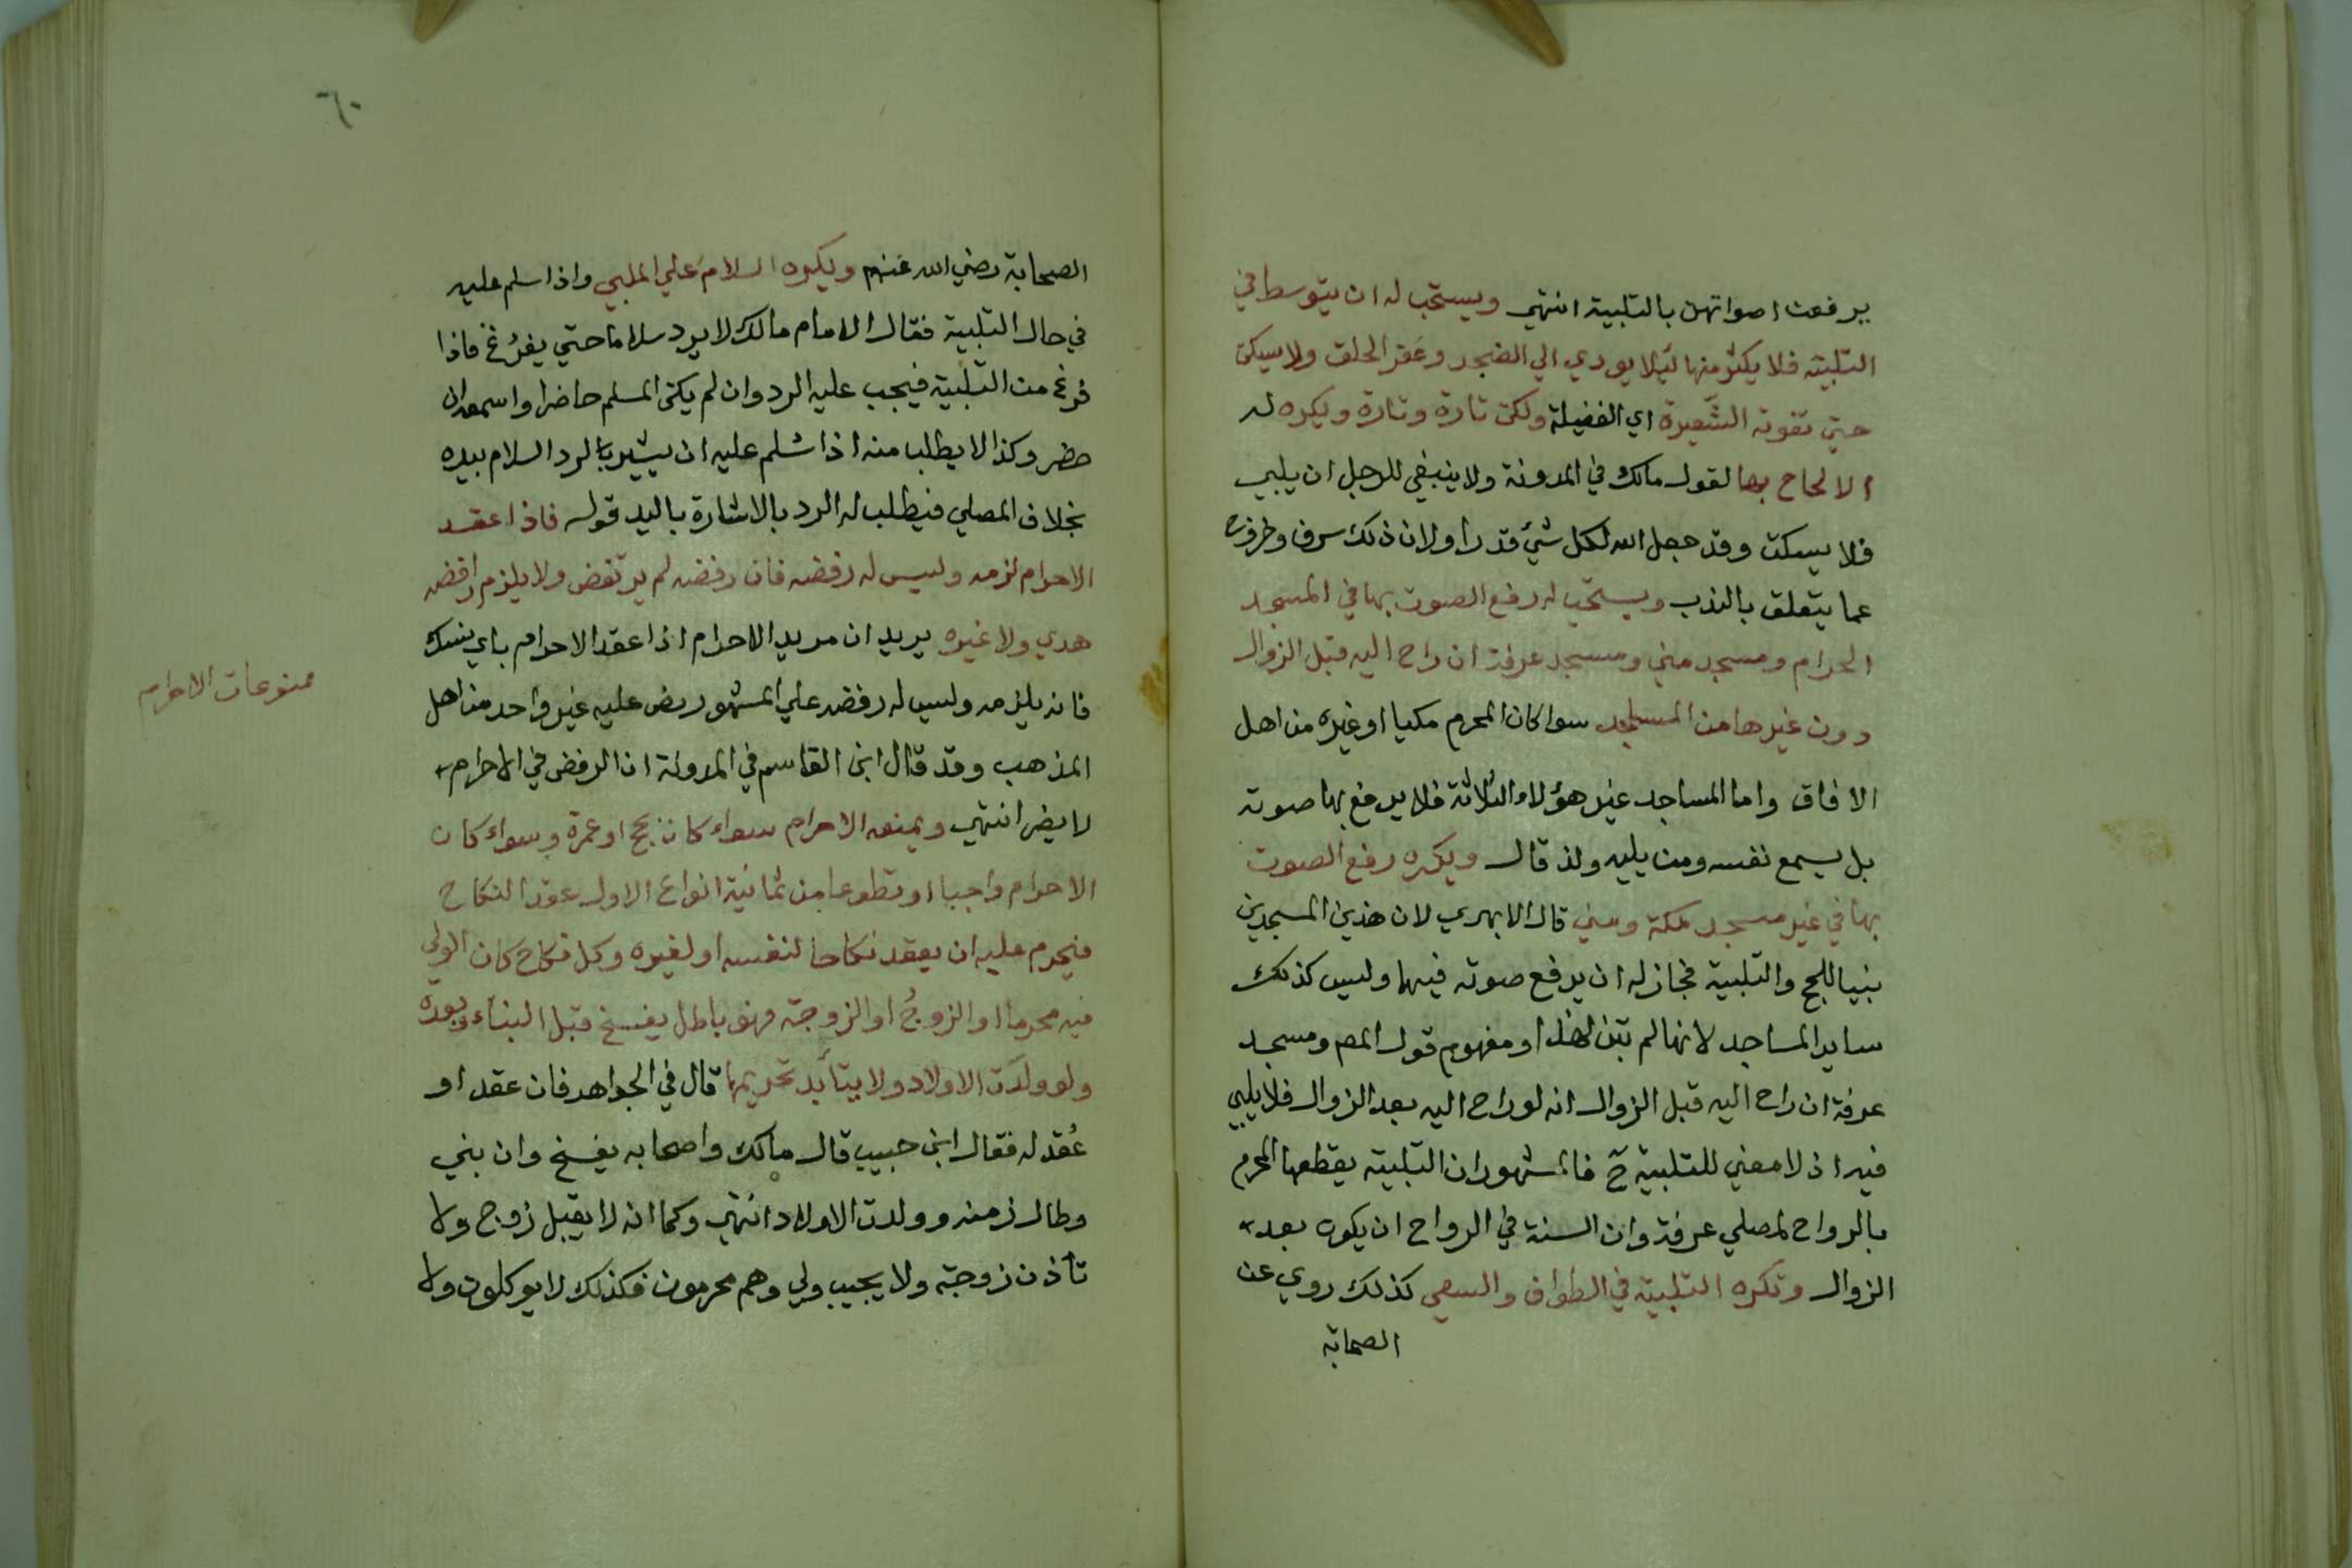 يرفعن اصواتهن بالتلبية انتهي ويستحب له ان يتوسط في
التلبية فلا يكثر منها ليلا يودي الي الضجر وعقر الحلق ولا يسكن
حتي تفوته الشعيرة اي الفضيلة ولكن تارة وتارة ويكره له
الالحاح بها لقول مالك في المدونة ولا ينبغي للرجل ان يلبي
فلا يسكت وقد جعل الله لكل شيء قدرا ولان ذلك سرف وخروج
عما يتعلق بالندب ويستحب له رفع الصوت بها في المسجد
الحرام ومسجد مني ومسجد عرفة ان راح اليه قبل الزوال
دون غيرها من المساجد سوا كان المحرم مكيا او غيره من اهل
الافاق واما المساجد غير هؤلاء الثلاثة فلا يرفع بها صوته
بل يسمع نفسه ومن يليه ولذ قال ويكره رفع الصوت
بها في غير مسجد مكة ومني قال الابهري لان هذين المسجدين
بنيا للحج والتلبية فجاز له ان يرفع صوته فيهما وليس كذلك
ساير المساجد لانها لم تبن لهذا ومفهوم قول المص ومسجد
عرفة ان راح اليه قبل الزوال انه لو راح اليه بعد الزوال فلا يلبي
فيه اذ لا معني للتلبية ح فالمشهور ان التلبية يقطعها المحرم
بالرواح لمصلي عرفة وان السنة في الرواح ان يكون بعد
الزوال وتكره التلبية في الطواف والسعي كذلك روي عن
الصحابة
٦٠
الصحابة رضي الله عنهم ويكره السلام علي الملبي واذا سلم عليه
في حال التلبية فقال الامام مالك لا يرد سلاما حتي يفرُغ فاذا
فرغ من التلبية فيجب عليه الرد وان لم يكن المسلم حاضرا واسمعه ان
حضر وكذا لا يطلب منه اذا سُلم عليه ان يشير بالرد السلام بيده
بخلاف المصلي فيطلب له الرد بالاشارة باليد قوله فاذا عقد
الاحرام لزمه وليس له رفضه فان رفضه لم يرتفض ولا يلزم رافضه
هدي ولا غيره يريد ان مريد الاحرام اذا عقد الاحرام باي نسك
فانه يلزمه وليس له رفضه علي المشهور ونص عليه غير واحد من اهل
المذهب وقد قال ابن القاسم في المدونة ان الرفض في الاحرام
لا يضر انتهي ويمنعه الاحرام سواء كان بحج او عمرة وسواء كان
الاحرام واجبا او تطوعا من ثمانية انواع الاول عقد النكاح
فيحرم عليه ان يعقد نكاحا لنفسه او لغيره وكل نكاح كان الولي
فيه محرما او الزوجُ او الزوجة فهو باطل يفسخ قبل البناء وبعده
ولو ولدت الاولاد ولا يتأبد تحريمها قال في الجواهر فان عقد او
عُقد له فقال ابن حبيب قال مالك واصحابه يفسخ وان بني
وطال زمنه وولدت الاولاد انتهي وكما انه لا يقبل زوج ولا
تأذن زوجة ولا يجيب ولي وهم محرمون فكذلك لا يوكلون ولا
ممنوعات الاحرام